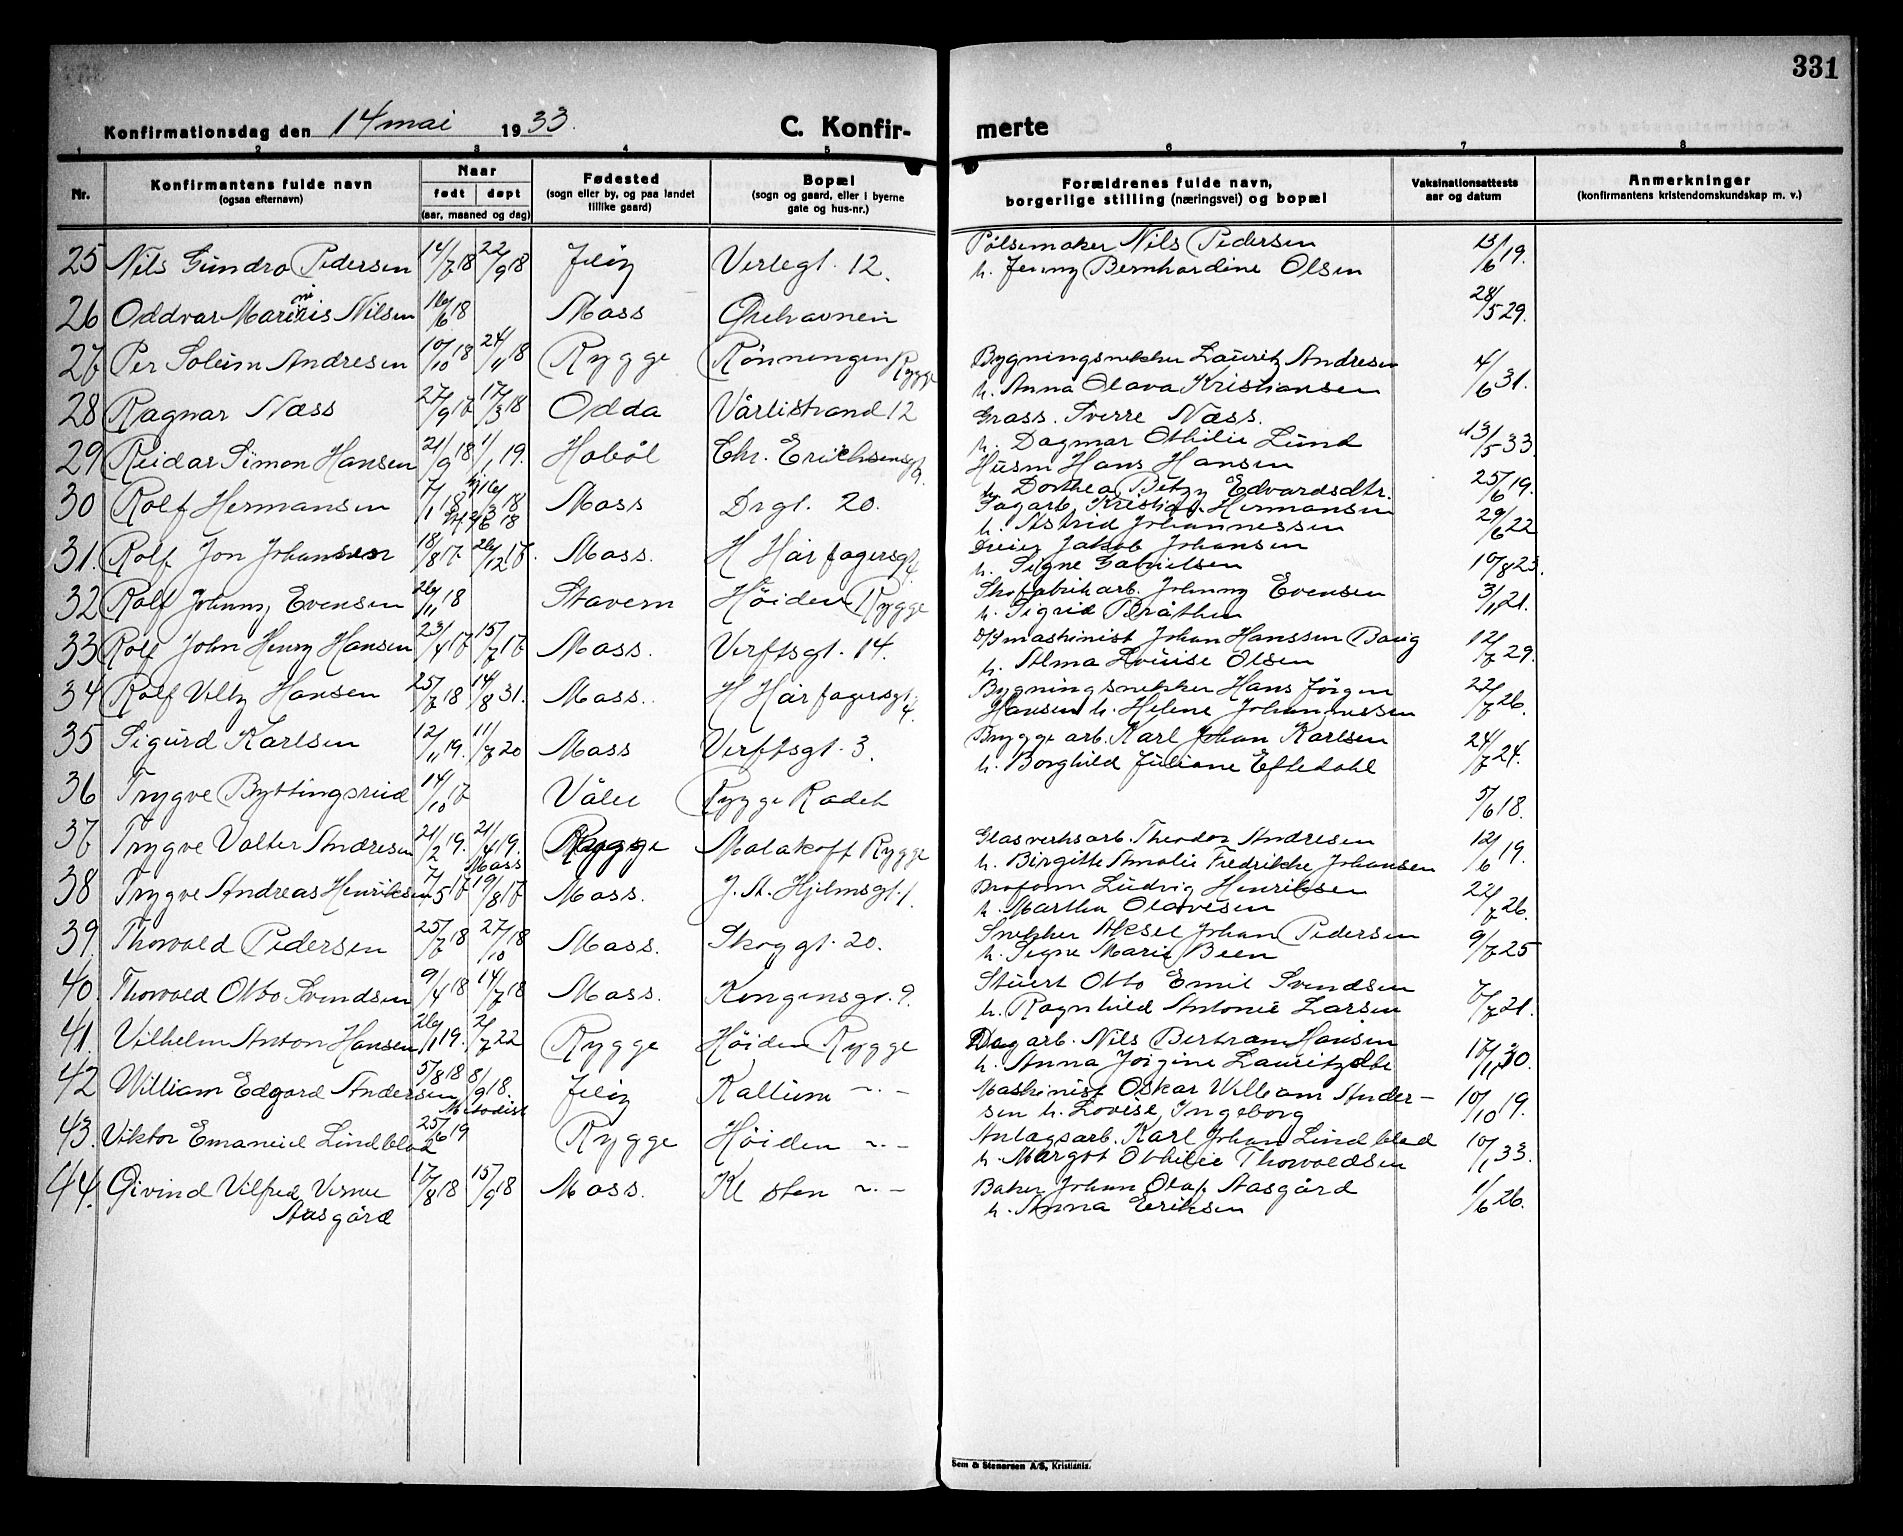 331
Konfirmationsdag den 14 mai 1933.
C. Konfir- merte
1 2 3 4 5 6 7 8
Nr.
Konfirmantens fulde navn
(ogsaa efternavn)
Naar
født døpt
(aar, maaned og dag)
Fødested
(sogn eller by, og paa landet
tillike gaard)
Bopæl
(sogn og gaard, eller i byerne
gate og hus-nr.)
Forældrenes fulde navn,
borgerlige stilling (næringsvei) og bopæl
Vaksinationsattests
aar og datum
Anmerkninger
(konfirmantens kristendomskundskap m. v.)
25 Nils Gundro Pedersen 14/7 18 22/9 18 Jeløy Verlegt. 12. Pølsemaker Nils Pedersen 13/6 19.
h. Jenny Bernhardine Olsen
26 Oddvar Marinis Nilsen 16/6 18 Moss Ørehavnen 28/5 29.
27 Per Solum Andresen 10/10 18 24/11 18 Rygge Rönningen Rygge Bygningsnekker Lauritz Andresen 4/6 31.
h. Anna Olava Kristiansen
28 Ragnar Næss 27/9 17 17/3 18 Odda Vårlistrand 12 Gross. Sverre Næss.
h. Dagmar Othilie Lund 13/5 33.
29 Reidar Simon Hansen 21/9 18 1/1 19. Hobøl Chr. Erichsensgt. 9. Husm Hans Hansen
h. Dorthea Betzy Edvardsdtr. 25/6 19.
30 Rolf Hermansen 7/1 18 Moss Drgt. 20. Fagarb. Kristian Hermansen
h. Astrid Johannessen 29/6 22
31. Rolf Jon Johansen 18/8 17. 26/12 17. Moss. H Hårfagersgt. 4 Dreier Jakob Johansen
h. Signe Gabrielsen 10/8 23.
32 Rolf Johnny Evensen 26/11 18 Stavern Höiden Rygge Skofabrikarb. Johnny Evensen 3/1 21.
h. Sigrid Bråthen
33 Rolf John Henry Hansen 23/4 17 15/7 17 Moss. Verftsgt. 14. D/S maskinist Johan Hanssen Baug 12/7 29.
h. Alma Lovise Olsen
34 Rolf Veltz Hansen 25/7 18 14/8 31. Moss. H Hårfagersgt. 4. Bygningsnekker Hans Jörgen 22/7 26.
Hansen h. Helene Johannessen
35 Sigurd Karlsen 12/11 19. 11/7 20 Moss Verftsgt. 3. Brygge arb. Karl Johan Karlsen 24/7 24.
h. Borghild Juliane Eftedahl
36 Trygve Byttingsrud 14/10 17 Våler Rygge Radet 5/6 18.
37 Trygve Valter Andresen 21/2 19. 21/4 19. Moss Rygge Malakoff Rygge Glasverksarb. Theodor Andresen 12/6 19.
h. Birgitte Amalie Fredrikke Johansen
38 Trygve Andreas Henriksen 7/5 17 19/8 17 Moss. J. A. Hjelmsgt. 1. Broform Ludvig Henriksen 22/7 26.
h. Martha Olavesen
39. Thorvald Pedersen 25/7 18 27/10 18 Moss. Skoggt. 20. Snekker Aksel Johan Pedersen 9/7 25
h. Signe Marie Been
40. Thorvald Otto Svendsen 9/4 18 14/7 18 Moss. Kongensgt. 9. Stuert Otto Emil Svendsen 7/7 21.
h. Ragnhild Antonie Larsen
41. Vilhelm Anton Hansen 26/1 19. 2/7 22 Rygge Höiden Rygge Dagarb. Nils Bertram Hansen 17/1 30.
h. Anna Jörgine Lauritzdtr
42 William Edgard Andersen 5/8 18 8/9 18. Metodist Jeløy Kallum - " - Maskinist Oskar William Ander- 10/10 19.
sen h. Lovise Ingeborg
43. Viktor Emanuel Lindblad 25/6 19 Rygge Höiden - " - Anlagsarb. Karl Johan Lindblad 10/1 33.
h. Margot Othilie Thorvaldsen
44. Öivind Vilfred Verner 17/8 18 15/9 18 Moss. Kl sten - " - Baker Johan Olaf Aasgård 1/6 26.
Aasgård h. Anna Eriksen
Sem & Stenersen A/S, Kristiania.